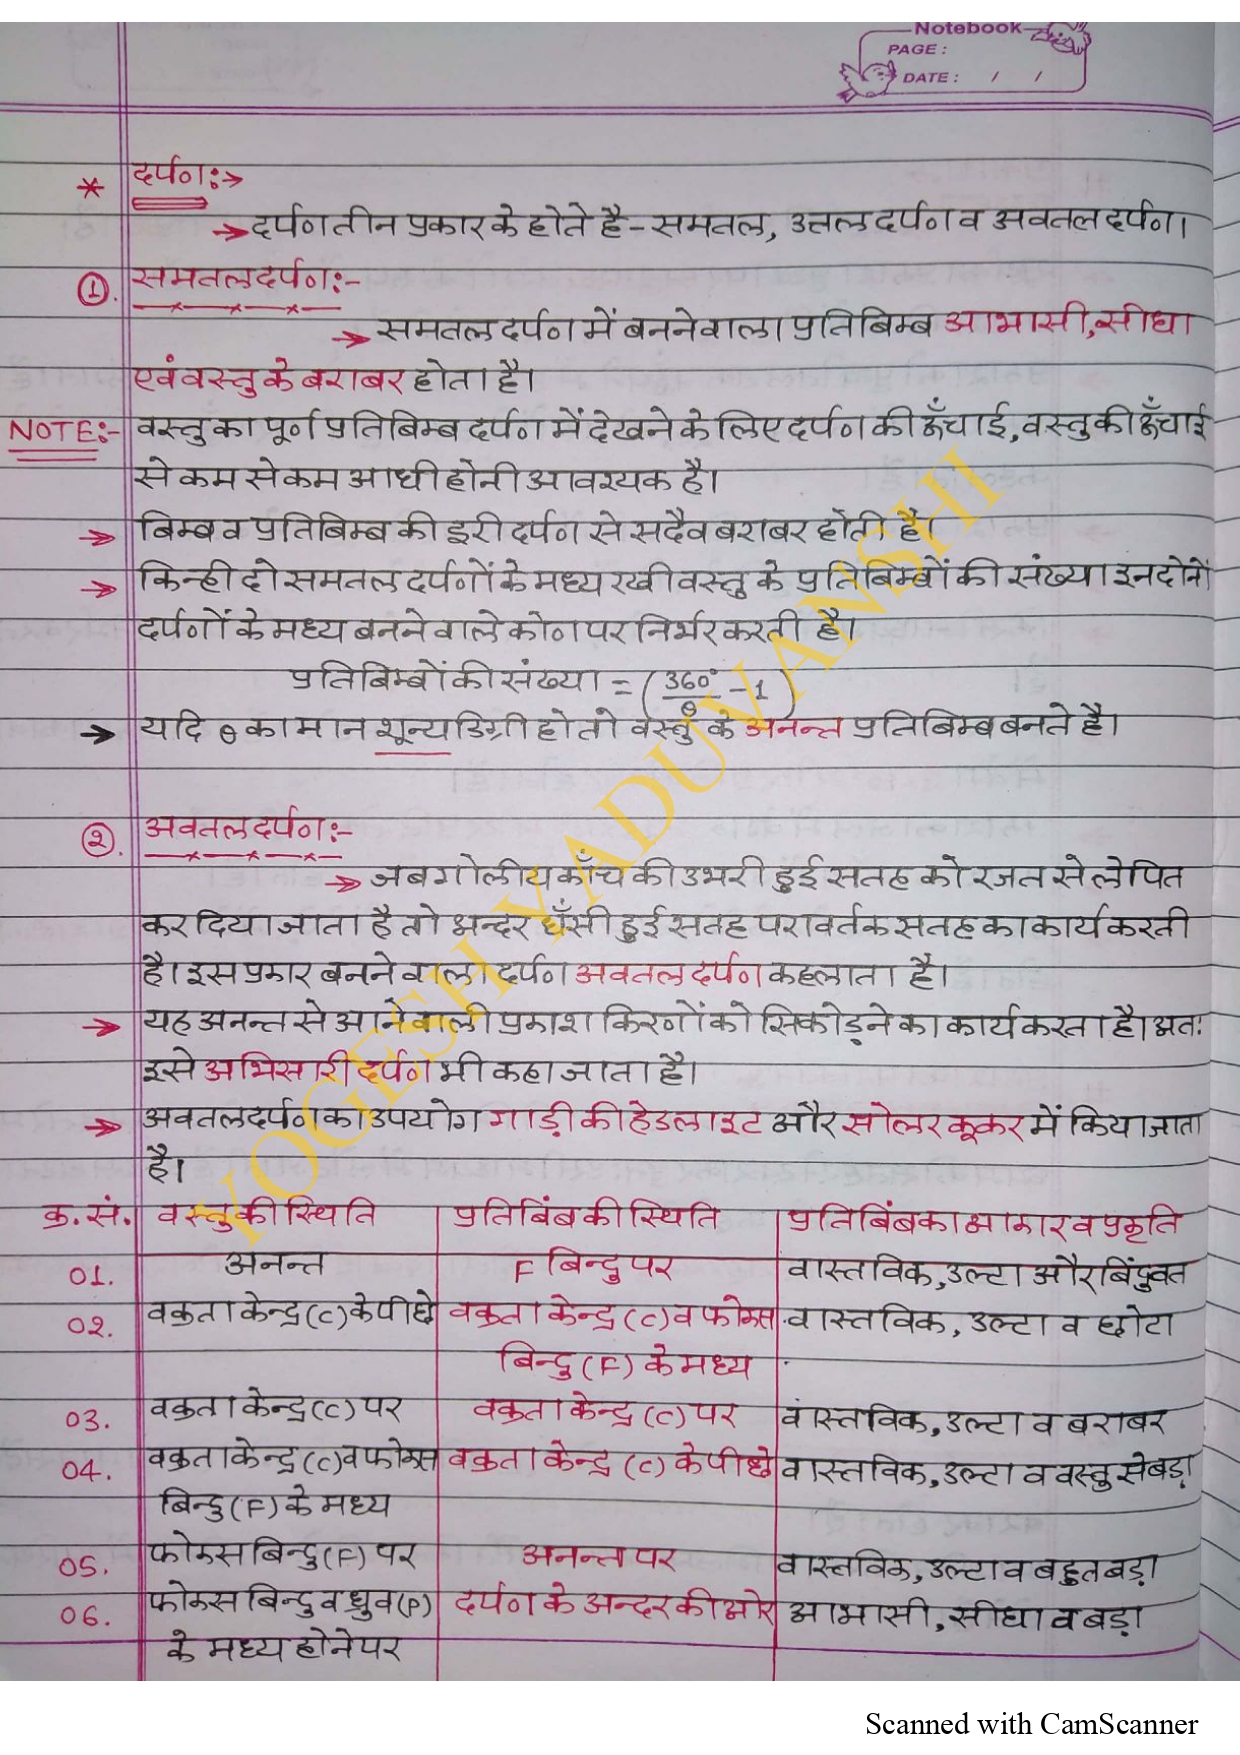 Notebook
PAGE :
DATE : / /
* दर्पण:→
→ दर्पण तीन प्रकार के होते है - समतल, उत्तल दर्पण व अवतल दर्पण।
①. समतल दर्पण:-
→ समतल दर्पण में बनने वाला प्रतिबिम्ब आभासी, सीधा
एवं वस्तु के बराबर होता है।
NOTE:- वस्तु का पूर्ण प्रतिबिम्ब दर्पण में देखने के लिए दर्पण की ऊँचाई, वस्तु की ऊँचाई
से कम से कम आधी होनी आवश्यक है।
→ बिम्ब व प्रतिबिम्ब की दूरी दर्पण से सदैव बराबर होती है।
→ किन्ही दो समतल दर्पणों के मध्य रखी वस्तु के प्रतिबिम्बों की संख्या इन दोनों
दर्पणों के मध्य बनने वाले कोण पर निर्भर करती है।
प्रतिबिम्बों की संख्या = (360°/θ - 1)
→ यदि θ का मान शून्य डिग्री हो तो वस्तु के अनन्त प्रतिबिम्ब बनते है।
②. अवतल दर्पण:-
→ जब गोलीय काँच की उभरी हुई सतह को रजत से लेपित
कर दिया जाता है तो अन्दर धँसी हुई सतह परावर्तक सतह का कार्य करती
है। इस प्रकार बनने वाला दर्पण अवतल दर्पण कहलाता है।
→ यह अनन्त से आने वाली प्रकाश किरणों को सिकोड़ने का कार्य करता है। अतः
इसे अभिसारी दर्पण भी कहा जाता है।
→ अवतल दर्पण का उपयोग गाड़ी की हेडलाइट और सोलर कूकर में किया जाता
है।
क्र.सं. वस्तु की स्थिति प्रतिबिंब की स्थिति प्रतिबिंब का आकार व प्रकृति
01. अनन्त F बिन्दु पर वास्तविक, उल्टा और बिंदुवत
02. वक्रता केन्द्र (C) के पीछे वक्रता केन्द्र (C) व फोकस वास्तविक, उल्टा व छोटा
बिन्दु (F) के मध्य
03. वक्रता केन्द्र (C) पर वक्रता केन्द्र (C) पर वास्तविक, उल्टा व बराबर
04. वक्रता केन्द्र (C) व फोकस वक्रता केन्द्र (C) के पीछे वास्तविक, उल्टा व वस्तु से बड़ा
बिन्दु (F) के मध्य
05. फोकस बिन्दु (F) पर अनन्त पर वास्तविक, उल्टा व बहुत बड़ा
06. फोकस बिन्दु व ध्रुव (P) दर्पण के अन्दर की ओर आभासी, सीधा व बड़ा
के मध्य होने पर
YOGESH YADUVANSHI
Scanned with CamScanner